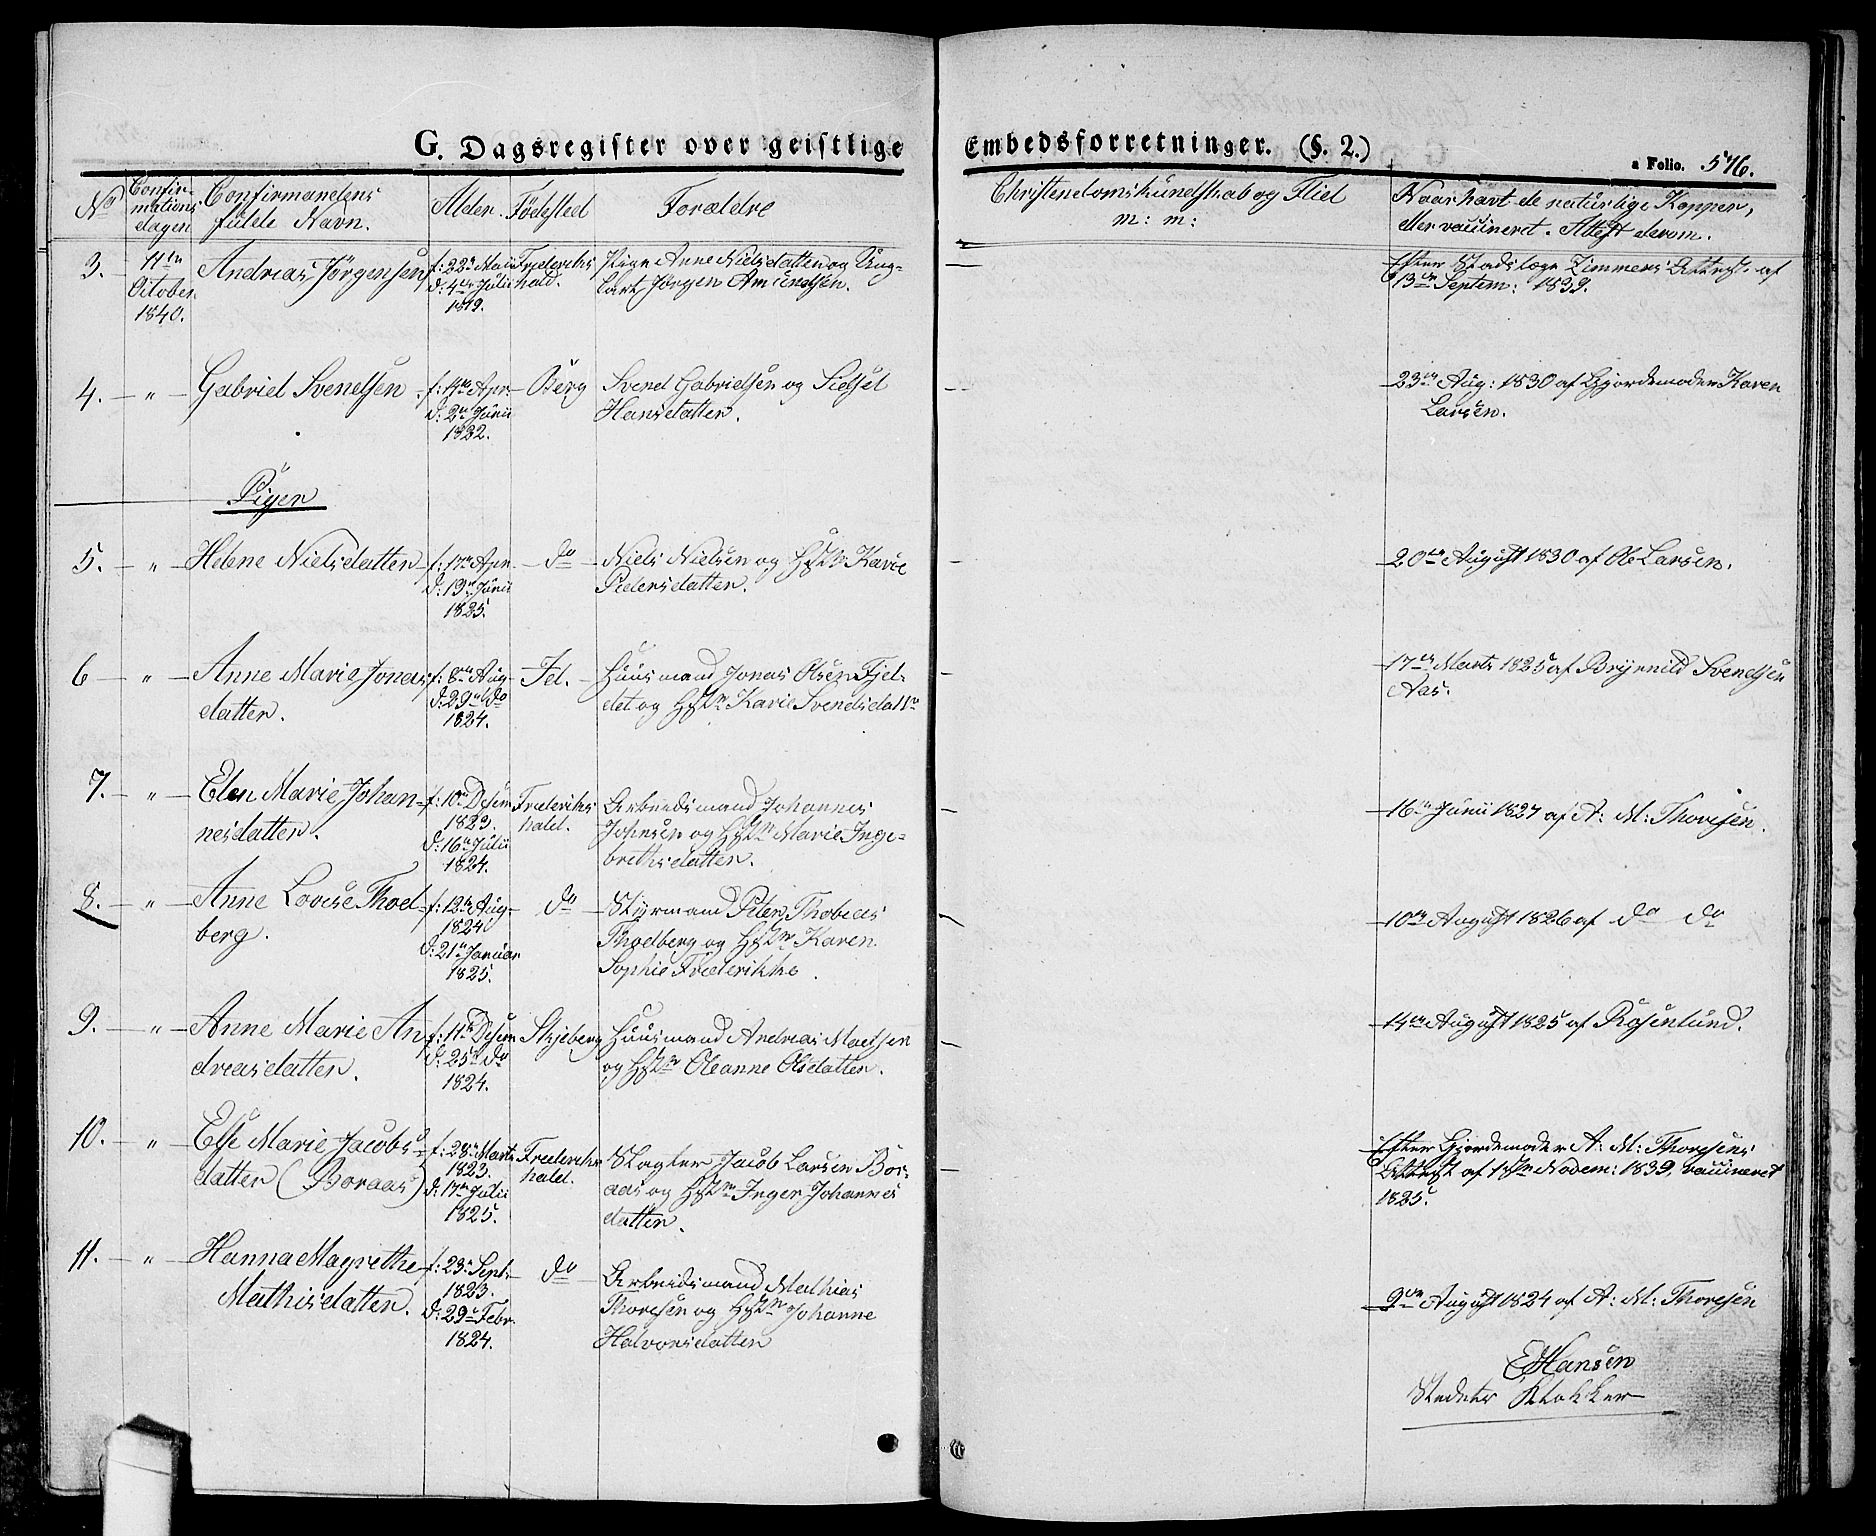 G. Dagsregister over geistlige Embedsforretninger. (§. 2.)
a Folio. 576.
No Confirmations dagen Confirmandens fulde Navn. Alder. Fødested Forældre Christendomskundskab og Flid m: m: Naar havt de naturlige Kopper, eller vaccineret. Attest derom.
3. 11te October 1840. Andreas Jörgensen f: 22de Maii d: 4de Julii 1819. Frederikshald. Pige Anne Nielsdatter og Ung-
karl Jörgen Amundsen. — Efter Stadslæge Zimmers Attest af
13de Septem: 1839.
4. — " — Gabriel Svendsen f: 14de Apr. d: 2den Junii 1822. Berg Svend Gabrielsen og Sidsel
Hansdatter. — 23de Aug: 1830 af Gjordemoder Karen
Larsen.
Piger
5. — " — Helene Nielsdatter f: 17de Apr. d: 19de Junii 1825. do Niels Nielsen og Hstr Karie
Pedersdatter. — 20de August 1830 af Ole Larsen.
6 — " — Anne Marie Jonas
datter. f: 8de Aug d: 29de do 1824. Id. Huusmand Jonas Olsen Fjel-
det og Hstr Karie Svendsdattr — 17de Marts 1825 af Brynild Svendsen
Aas.
7. — " — Elen Marie Johan-
nesdatter. f: 10de Desem 1823. d: 16de Julii 1824. Frederikshald. Arbeidsmand Johannes
Johnsen og Hstr Marie Inge-
brethsdatter. — 16de Junii 1827 af A: M: Thoresen.
8. — " — Anne Lovise Thod-
berg. f: 12de Aug 1824 d: 21de Januar 1825. do Styrmand Peter Thobias
Thodberg og Hstr Karen
Sophie Frederikke. — 10de August 1826 af do do
9. — " — Anne Marie An
dreasdatter. f: 11te Desem d: 25de do 1824. Skjeberg Huusmand Andreas Madsen
og Hstr Oleanne Olsdatter. — 14de August 1825 af Rosenlund.
10. — " — Else Marie Jacobs-
datter (Boraas) f: 28de Marts 1823. d: 17de Julii 1825. Frederikshald. Slagter Jacob Larsen Bor-
aas og Hstr Inger Johannes
datter. — Efter Gjordemoder A: M: Thoresens
Attest af Novem: 1839, vaccineret
1825.
11. — " — Hanna Magrethe
Mathisdatter. f: 23de Sept. 1823. d: 29de Febr. 1824. do Arbeidsmand Mathias
Thoresen og Hstr Johanne
Halvorsdatter — 9de August 1824 af A: M: Thoresen
E Hansen
Stedets Klokker